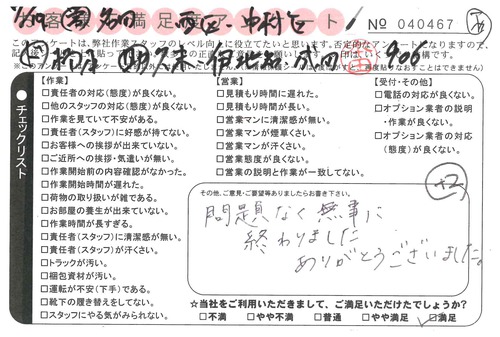 お客様満足度アンケート
No 040467
このアンケートは、弊社作業スタッフのレベル向上に役立てたいと思います。否定的なアンケートになりますので、
【作業】
□責任者の対応(態度)が良くない。
□他のスタッフの対応(態度)が良くない。
□作業を見ていて不安がある。
□責任者(スタッフ)に好感が持てない。
□お客様への挨拶が出来ていない。
□ご近所への挨拶・気遣いが無い。
□作業開始前の内容確認がなかった。
□作業開始時間が遅れた。
□荷物の取り扱いが雑である。
□お部屋の養生が出来ていない。
□作業時間が長すぎる。
□責任者(スタッフ)に清潔感が無い。
□責任者(スタッフ)が汗くさい。
□トラックが汚い。
□梱包資材が汚い。
□運転が不安(下手)である。
□靴下の履き替えをしてない。
□スタッフにやる気がみられない。
【営業】
□見積もり時間に遅れた。
□見積もり時間が長い。
□営業マンに清潔感が無い。
□営業マンが煙草くさい。
□営業マンが汗くさい。
□営業態度が良くない。
□営業の説明と作業が一致してない。
【受付・その他】
□電話の対応が良くない。
□オプション業者の説明
・作業が良くない。
□オプション業者の対応
(態度)が良くない。
チェックリスト
その他、ご意見・ご要望等ありましたらお書き下さい。
+2
問題なく無事に
終わりました
ありがとうございました。
☆当社をご利用いただきまして、ご満足いただけたでしょうか?
□不満 □やや不満 □普通 □やや満足 ☑満足